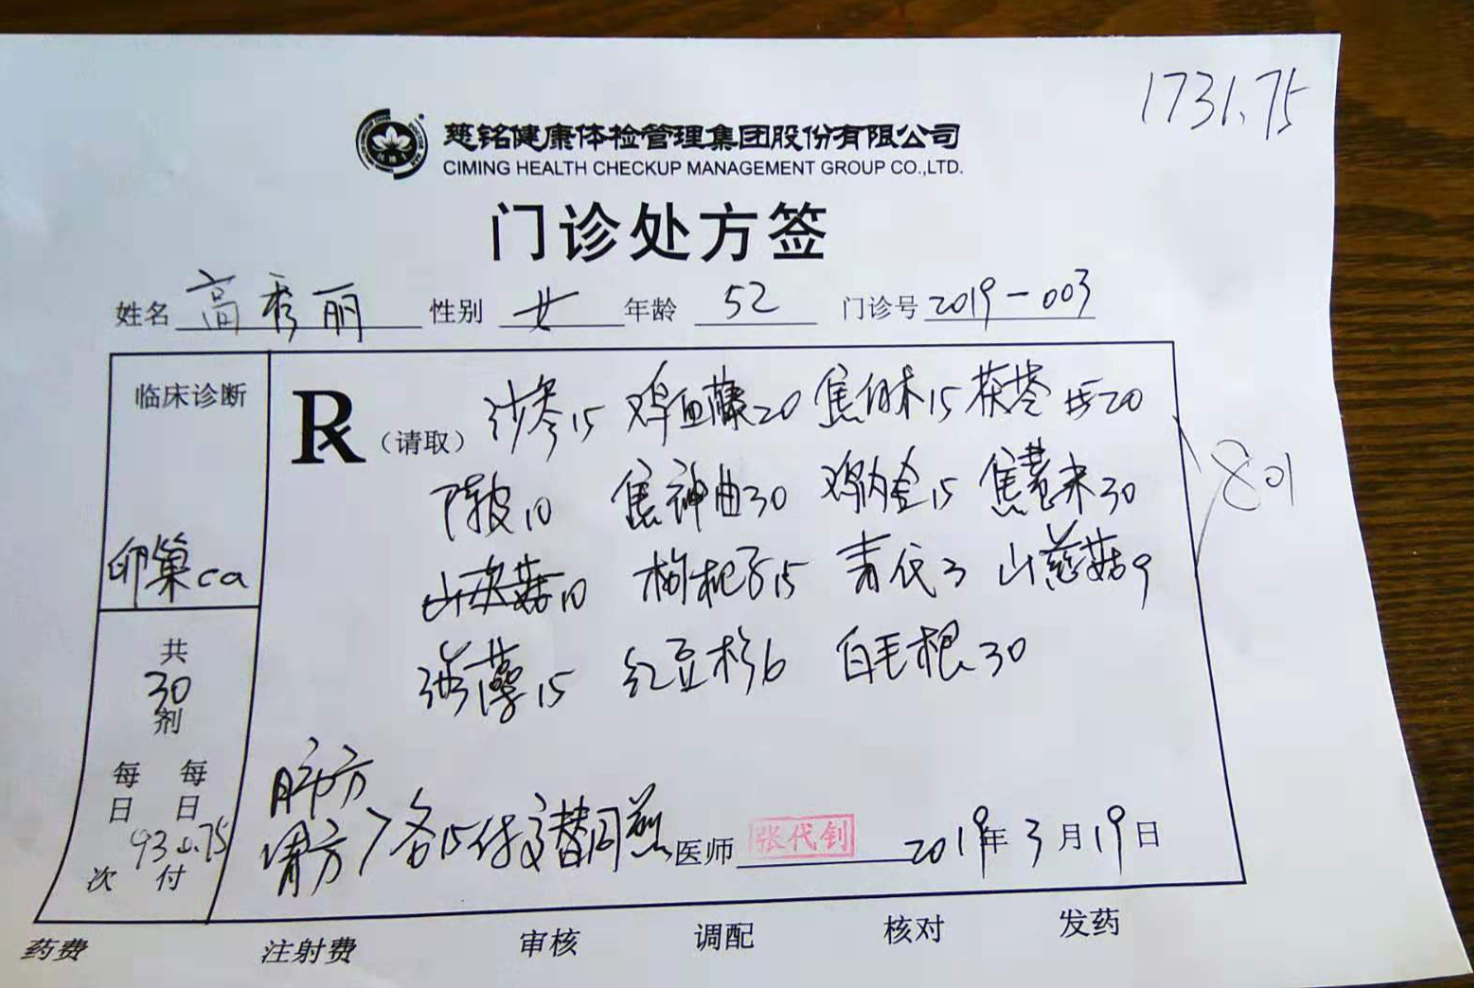 1731.75
慈铭健康体检管理集团股份有限公司
CIMING HEALTH CHECKUP MANAGEMENT GROUP CO.,LTD.
门诊处方签
姓名 高秀丽 性别 女 年龄 52 门诊号 2019-003
临床诊断
卵巢ca
共
30
剂
每 每
日 日
930.75
次 付
R (请取) 沙参15 鸡血藤20 焦白术15 茯苓 20
陈皮10 焦神曲30 鸡内金15 焦薏米30
801
10 枸杞子15 青代3 山慈菇9
15 红豆杉6 白毛根30
肺方
胃方 >各15付交替同煎
医师 张代钊 2019年3月19日
药费 注射费 审核 调配 核对 发药